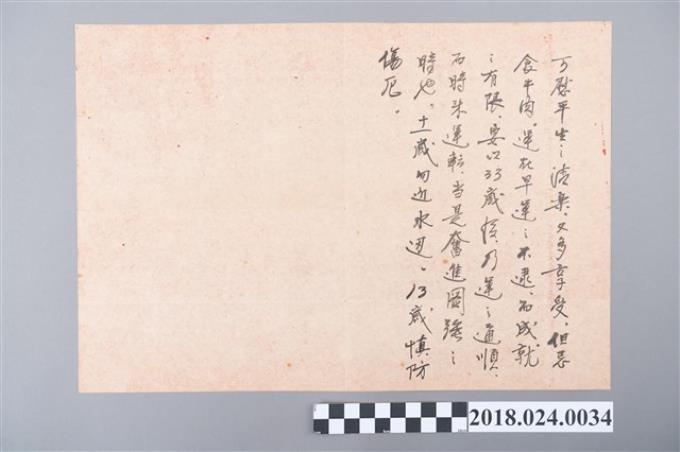 可慰平生之清樂，又多享受，但忌
食牛肉。運在早運之不逮，而成就
之有限，要以33歲後，乃運之通順，
而時來運轉，當是奮進圖強之
時也。十一歲勿近水邊。13歲慎防
傷厄。
2018.024.0034